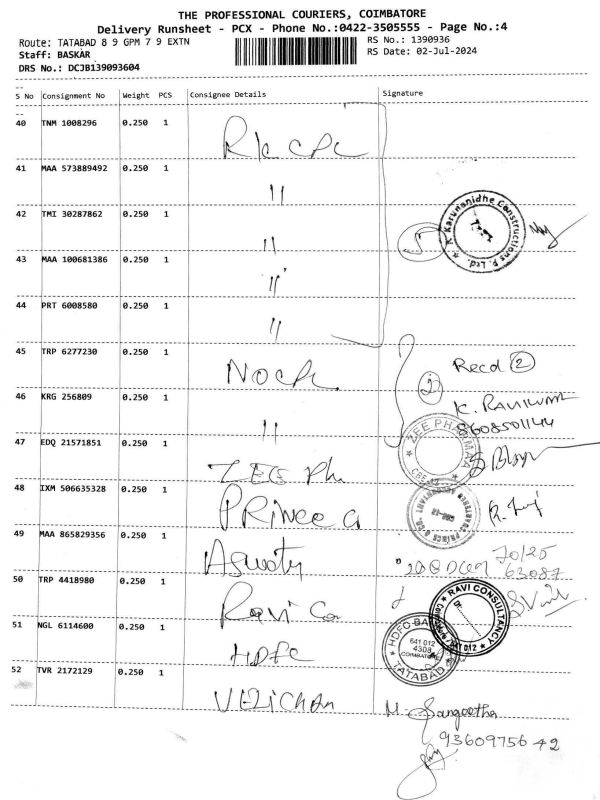 THE PROFESSIONAL COURIERS, COIMBATORE
Delivery Runsheet - PCX - Phone No.:0422-3505555 - Page No.:4
Route: TATABAD 8 9 GPM 7 9 EXTN
RS No.: 1390936
Staff: BASKAR
RS Date: 02-Jul-2024
DRS No.: DCJB139093604
S No Consignment No Weight PCS Consignee Details Signature
40 TNM 1008296 0.250 1
41 MAA 573889492 0.250 1 "
42 TMI 30287862 0.250 1 "
R Karunanidhe Constructions P. Ltd.
5
43 MAA 100681386 0.250 1 "
44 PRT 6008580 0.250 1 "
45 TRP 6277230 0.250 1
Recd 2
2
46 KRG 256809 0.250 1 "
K. RAVIKUMAR
8608501144
47 EDQ 21571851 0.250 1 ZEE Ph
ZEE PHARMAA
48 IXM 506635328 0.250 1 PRINCE
49 MAA 865829356 0.250 1
70125
63087
50 TRP 4418980 0.250 1 Ravi Co
RAVI CONSULTANCY
51 NGL 6114600 0.250 1 HDFC
HDFC BANK
641 012
4308
COIMBATORE
TATABAD
52 TVR 2172129 0.250 1
M. Sangeetha
9360975642